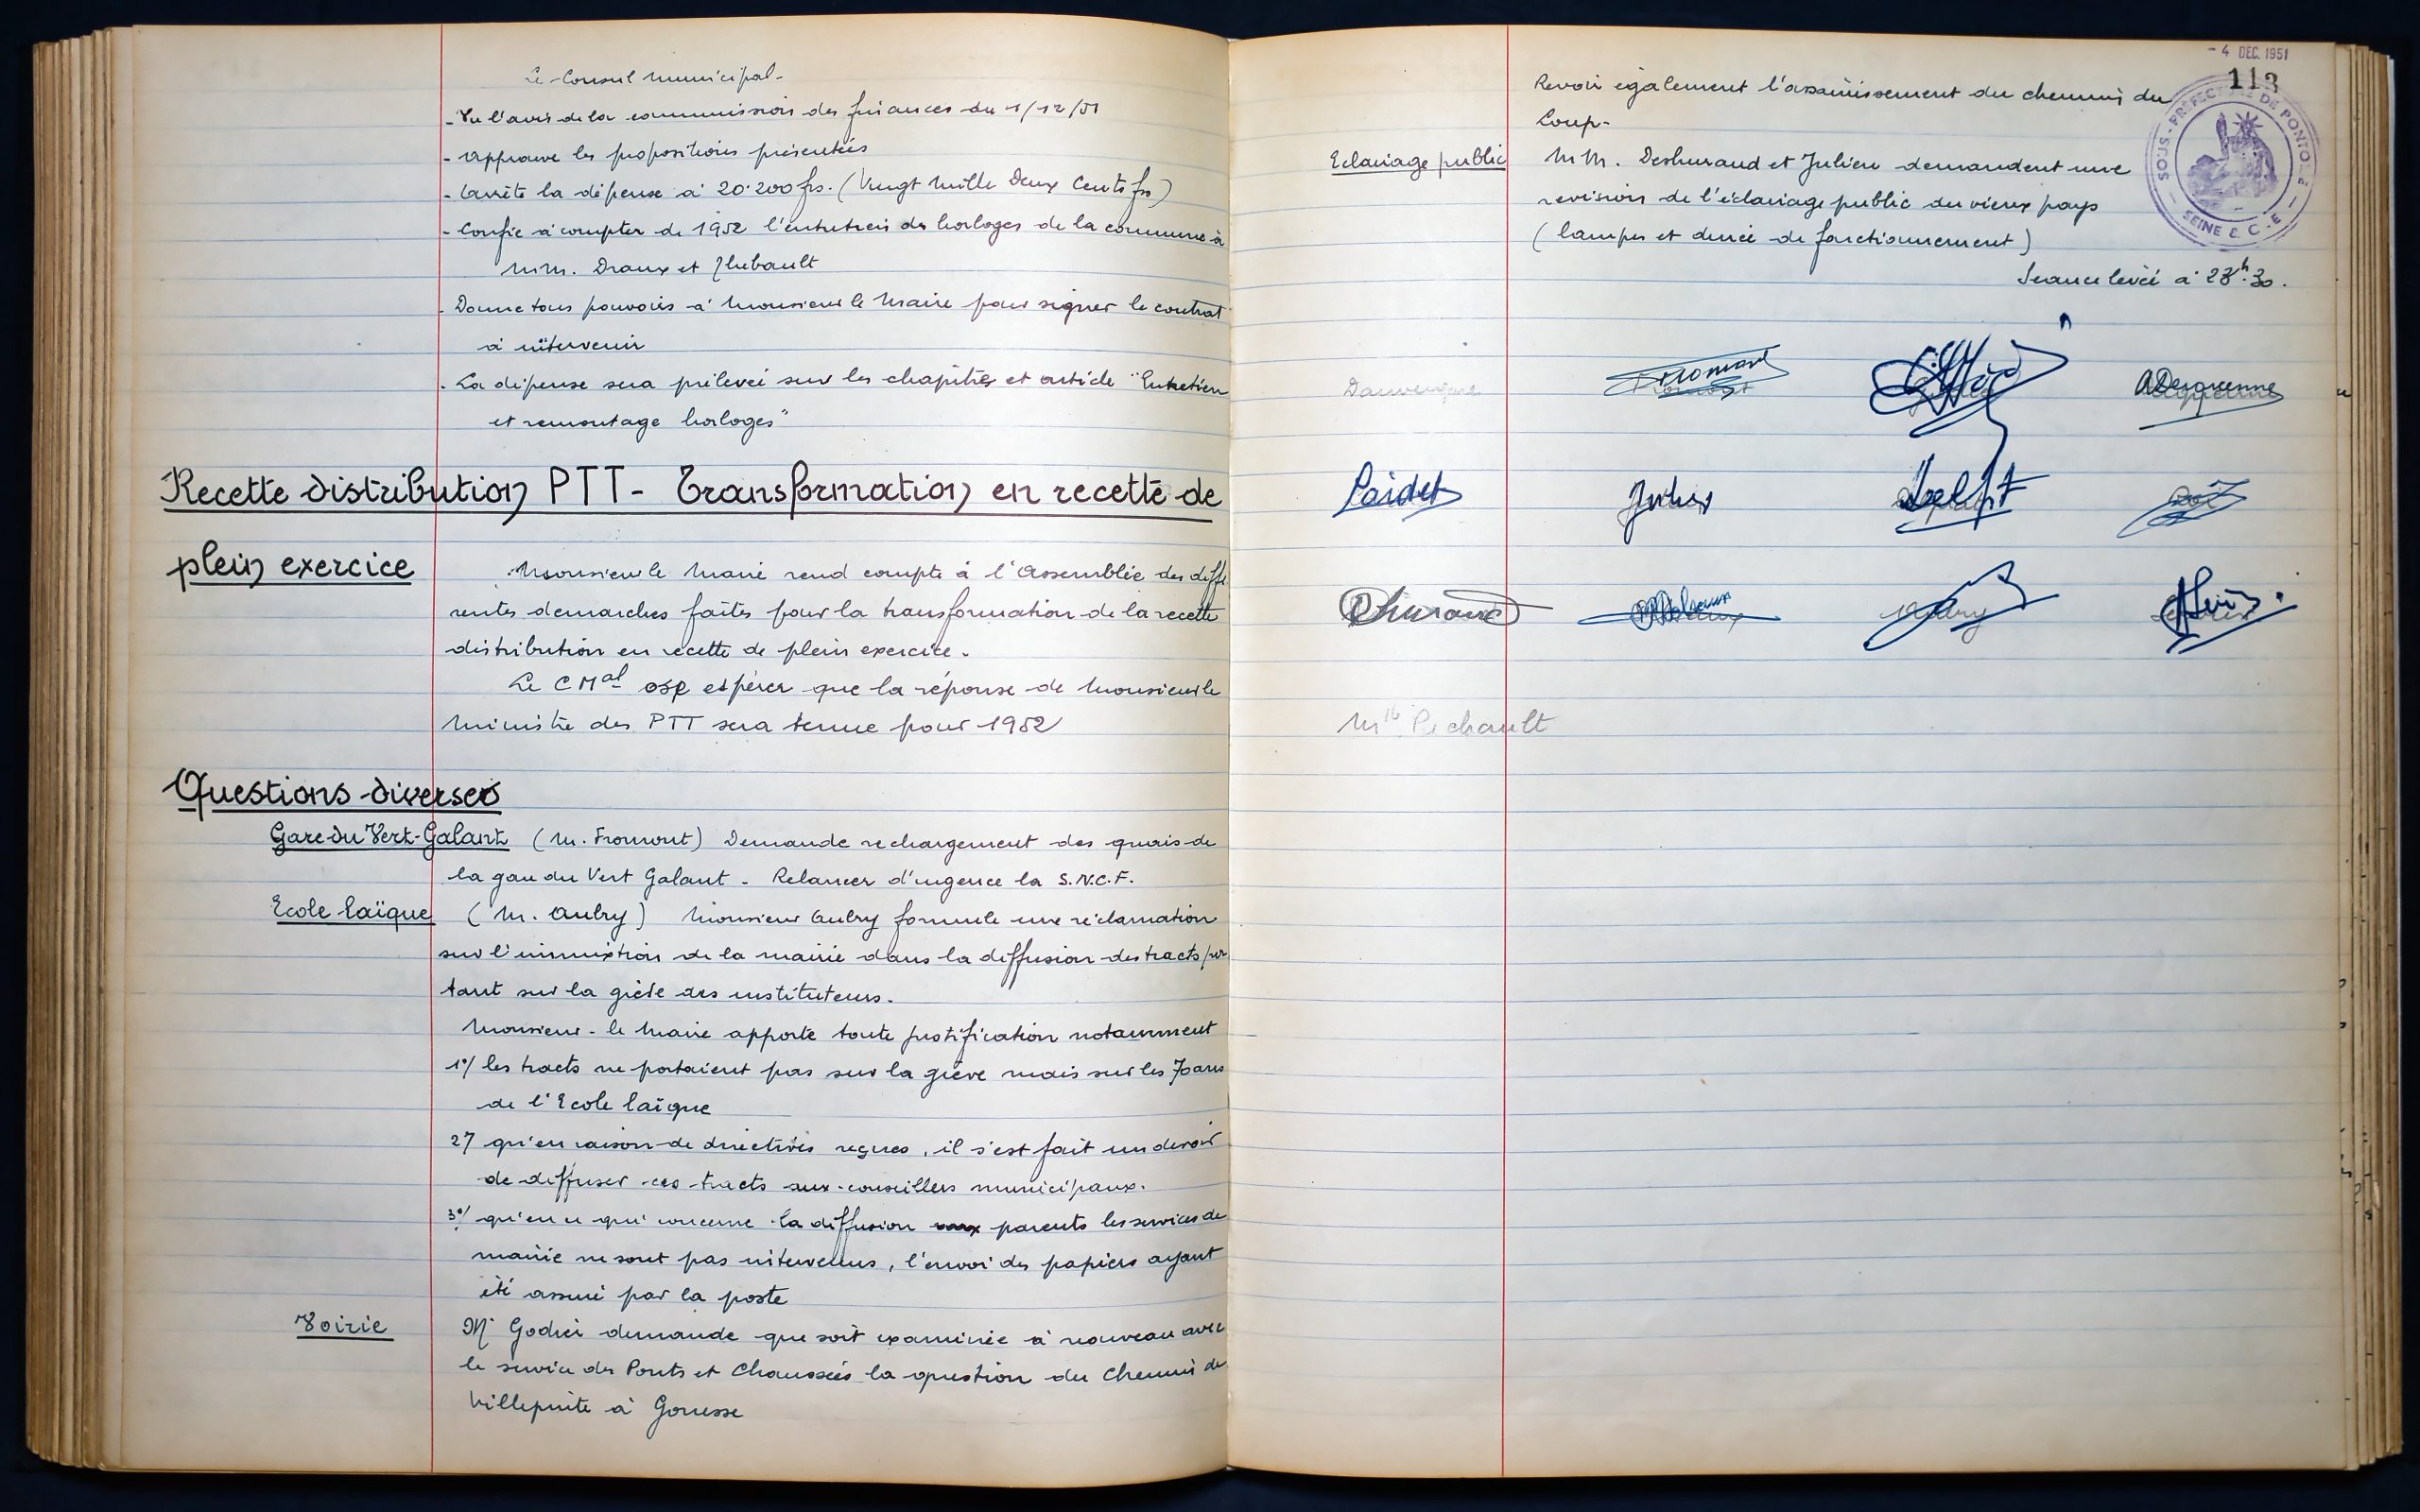 Le Conseil Municipal-
- Vu l'avis de la commission des finances du 1/12/51
- Approuve les propositions présentées
- Arrête la dépense à 20.200 frs. (Vingt mille Deux Cents frs)
- Confie à compter de 1952 l'entretien des horloges de la commune à
MM. Draux et Thibault
- Donne tous pouvoirs à Monsieur le Maire pour signer le contrat
à intervenir
- La dépense sera prélevée sur les chapitres et article "Entretien
et remontage horloges"
Recette distribution PTT- Transformation en recette de
plein exercice
Monsieur le Maire rend compte à l'Assemblée des diffé
rentes démarches faites pour la transformation de la recette
distribution en recette de plein exercice.
Le C Mal ose espérer que la réponse de Monsieur le
Ministre des PTT sera tenue pour 1952
Questions diverses
Gare du Vert-Galant (M. Fromont) Demande rechargement des quais de
la gare du Vert Galant - Relancer d'urgence la S.N.C.F.
Ecole laïque (M. Aubry) Monsieur Aubry formule une réclamation
sur l'immixtion de la mairie dans la diffusion des tracts por
tant sur la grève des instituteurs.
Monsieur le Maire apporte toute justification notamment
1°/ les tracts ne portaient pas sur la grève mais sur les 70 ans
de l'Ecole laïque
2°/ qu'en raison de directives reçues, il s'est fait un devoir
de diffuser ces tracts aux conseillers municipaux.
3°/ qu'en ce qui concerne la diffusion aux parents les services de
mairie ne sont pas intervenus, l'envoi des papiers ayant
été assuré par la poste
Voirie Mr Godier demande que soit examinée à nouveau avec
le service des Ponts et Chaussées la question du Chemin de
Villepinte à Gonesse
- 4 DEC. 1951
113
SOUS-PRÉFECTURE DE PONTOISE
SEINE & O.
Revoir également l'assainissement du chemin du
Loup-
Eclairage public MM. Deshuraud et Julien demandent une
revision de l'éclairage public du vieux pays
(lampes et durée de fonctionnement)
Séance levée à 23h.30.
Dauvergne Fromont
Laidet Julien
Aubry
Mlle Pichault